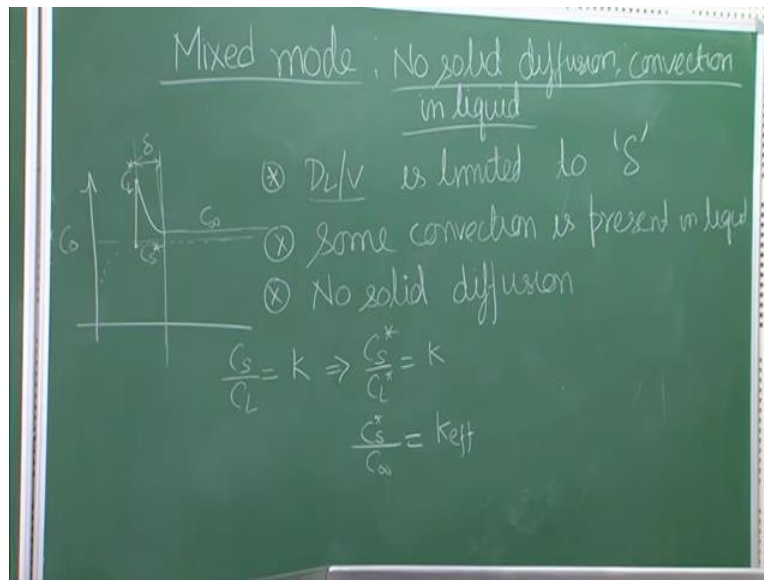 Mixed mode : No solid diffusion, convection
in liquid
δ
⊗ DL/V is limited to 'δ'
C∞
⊗ Some convection is present in liquid
C0
Cs*
⊗ No solid diffusion
Cs/CL = K ⇒ Cs*/CL* = K
Cs*/C∞ = Keff